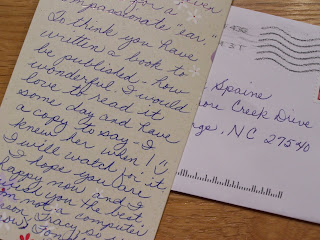 for a
mpassionate "ear."
To think you have
written a book to
be published - how
wonderful. I would
love to read it
some day and have
a copy to say - I
knew her when!
I will watch for it
I hope you are
happy now and I
wish you the best
I'm not a computer
Tracy, so
Spaine
ore Creek Drive
ngs, NC 27540